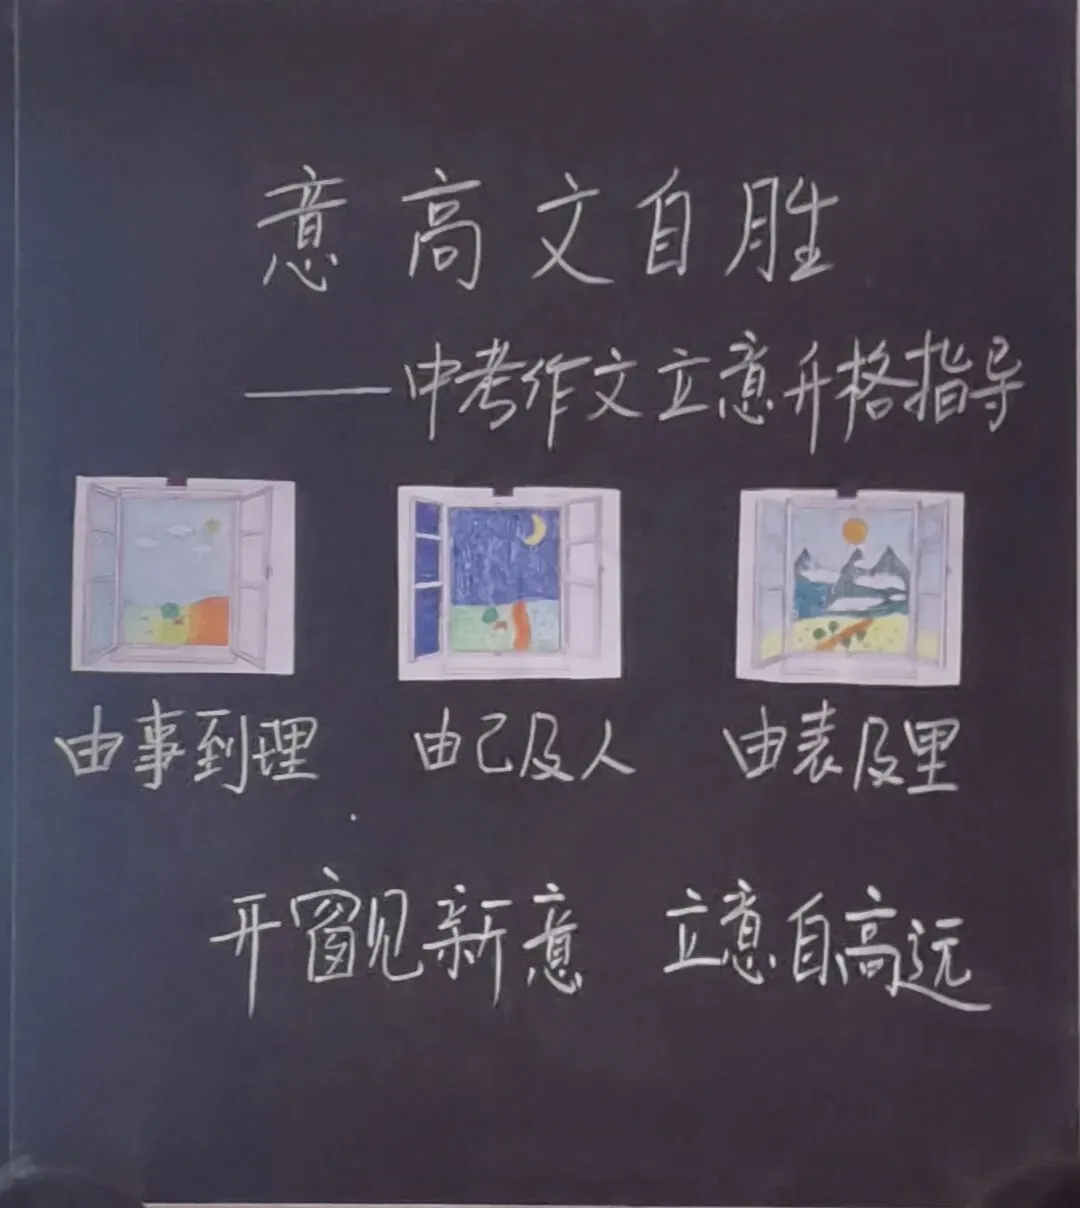 意高文自胜
——中考作文立意升格指导
由事到理 由己及人 由表及里
开窗见新意 立意自高远